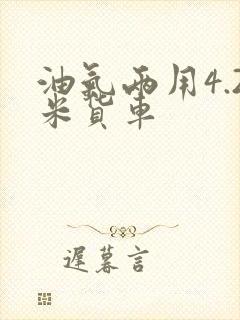 油氣兩用4.2
米貨車
遲暮言